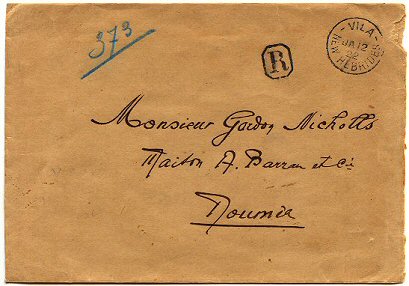 373
R
VILA
JA 12
22
NEW HEBRIDES
Monsieur Gordon Nicholls
Maison A. Barrau et Cie
Nouméa